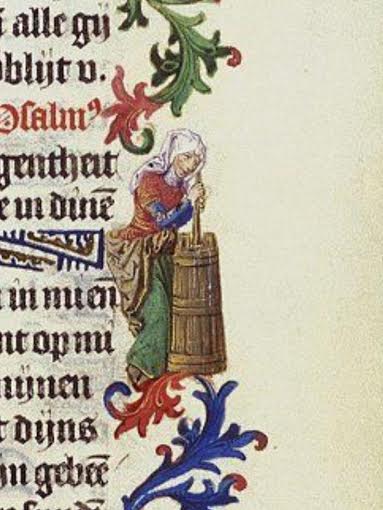 alle gij
blijt v.
Psalmꝰ
gentheit
e in dinē
in
nt op mi
mijnen
t dijns
gebeē